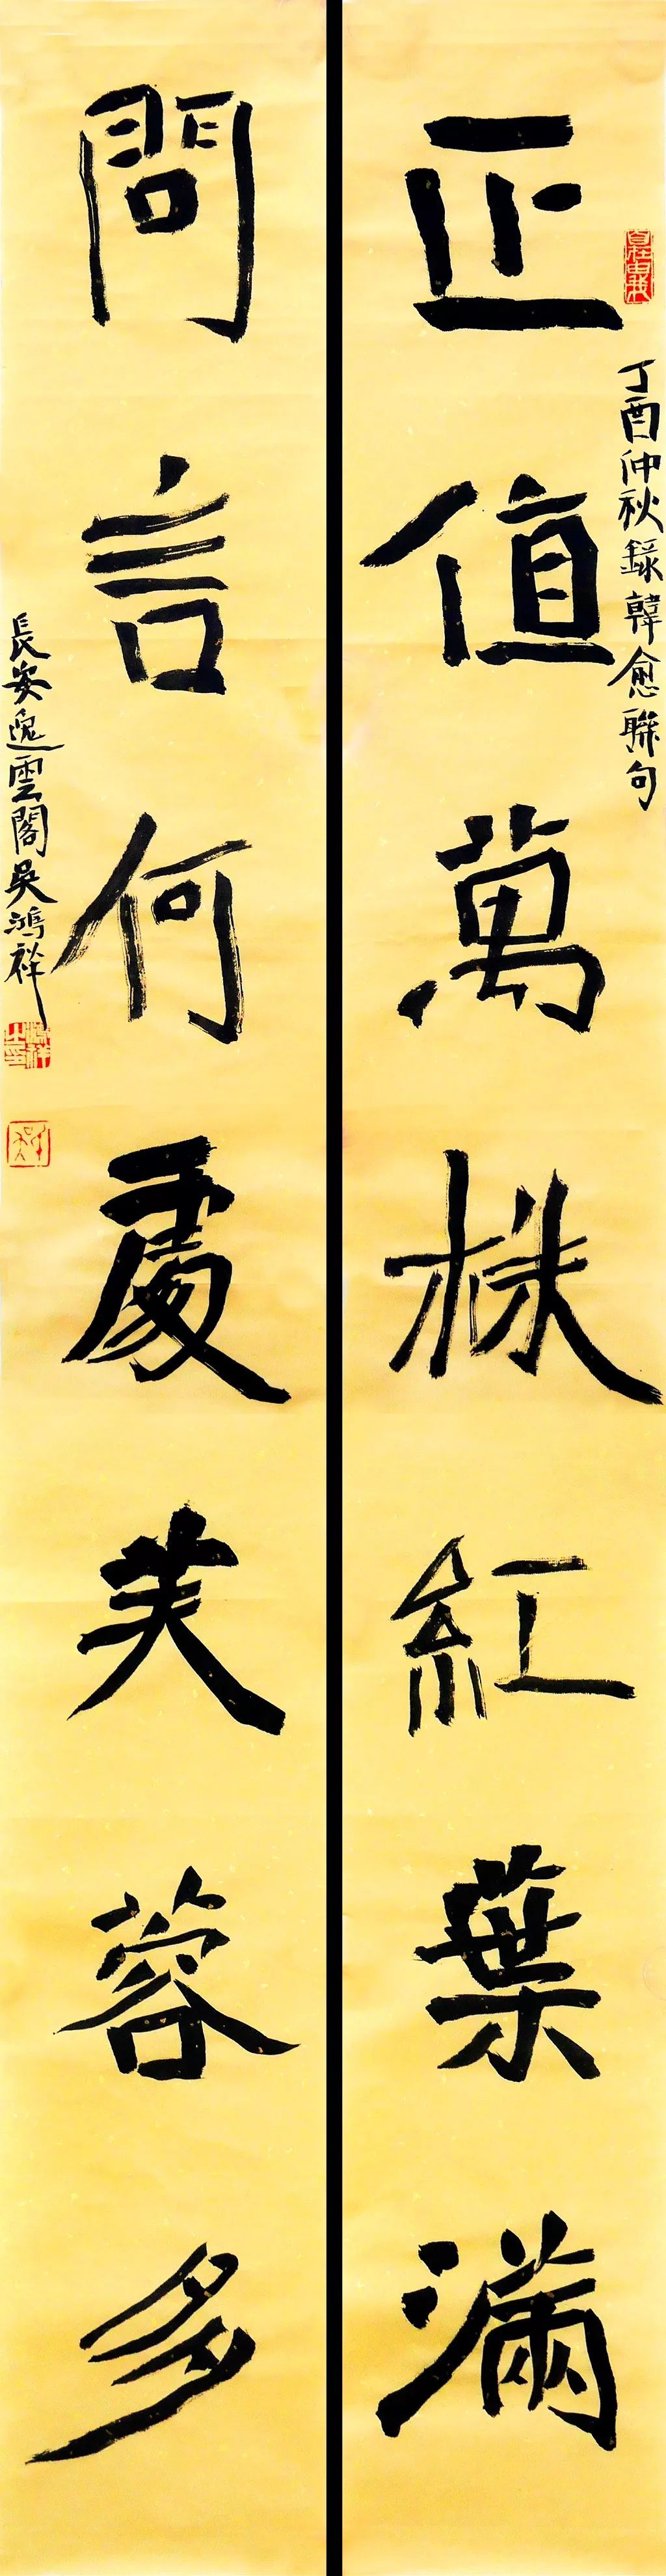 丁酉仲秋錄韓愈聯句
正值萬株紅葉滿
問言何處芙蓉多
長安逸雲閣吳鴻祥